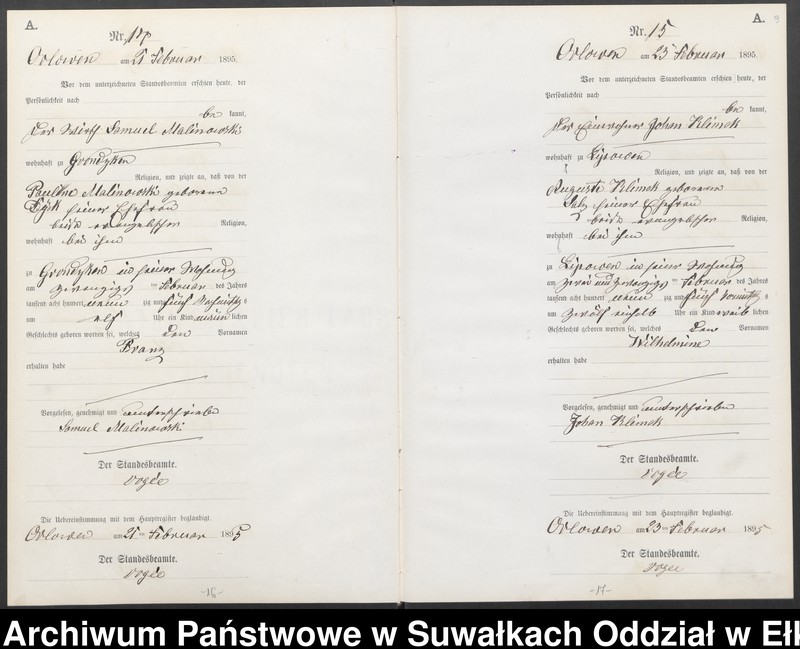 A.
Nr. 14
Orlowen am 21 Februar 1895.
Vor dem unterzeichneten Standesbeamten erschien heute, der
Persönlichkeit nach
be kannt,
der Wirth Samuel Malinowski
wohnhaft zu Grondzken
Religion, und zeigte an, daß von der
Pauline Malinowski geborenen
seiner Ehefrau
beide evangelischer Religion,
wohnhaft bei ihm
zu Grondzken in seiner Wohnung
am zwanzigsten Februar des Jahres
tausend acht hundert neun zig und fünf Vormittags
um elf Uhr ein Kind männlichen
Geschlechts geboren worden sei, welches den Vornamen
Franz
erhalten habe
Vorgelesen, genehmigt und unterschrieben
Samuel Malinowski
Der Standesbeamte.
Vogée
Die Uebereinstimmung mit dem Hauptregister beglaubigt.
Orlowen am 21ten Februar 1895
Der Standesbeamte.
Vogée
-16-
A.
9
Nr. 15
Orlowen am 23 Februar 1895.
Vor dem unterzeichneten Standesbeamten erschien heute, der
Persönlichkeit nach
be kannt,
der Einwohner Johan Klimek
wohnhaft zu Lipowen
Religion, und zeigte an, daß von der
Auguste Klimek geborenen
seiner Ehefrau
beide evangelischer Religion,
wohnhaft bei ihm
zu Lipowen in seiner Wohnung
am zwei und zwanzigsten Februar des Jahres
tausend acht hundert neun zig und fünf Vormittags
um zwölf einhalb Uhr ein Kind weiblichen
Geschlechts geboren worden sei, welches den Vornamen
Wilhelmine
erhalten habe
Vorgelesen, genehmigt und unterschrieben
Johan Klimek
Der Standesbeamte.
Vogée
Die Uebereinstimmung mit dem Hauptregister beglaubigt.
Orlowen am 23ten Februar 1895
Der Standesbeamte.
Vogée
-17-
Archiwum Państwowe w Suwałkach Oddział w Ełk